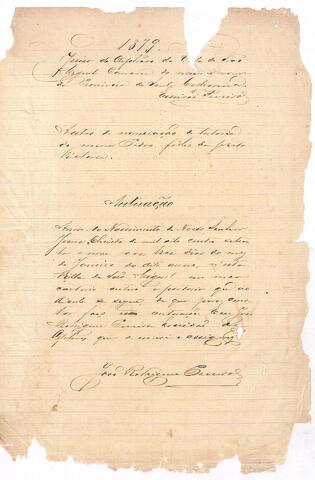 1879
Juizo de Orphãos da Villa de São
Miguel Comarca do mesmo nome
da Provincia de Santa Catharina
Escrivão Ferreira
Autos de nomeação de tutoria
do menor Pedro, filho da preta
Victoria
Autuação
Anno do Nascimento de Nosso Senhor
Jesus Christo de mil oito centos seten
ta e nove aos dias do mez
de Janeiro do dito anno, n'esta
Villa de São Miguel em meu
cartorio autuo a portaria que ao
diante se segue; de que para cons
tar faço esta autuação. Eu José
Rodrigues Ferreira escrivão de
Orphãos que o escrevi e assigno
José Rodrigues Ferreira